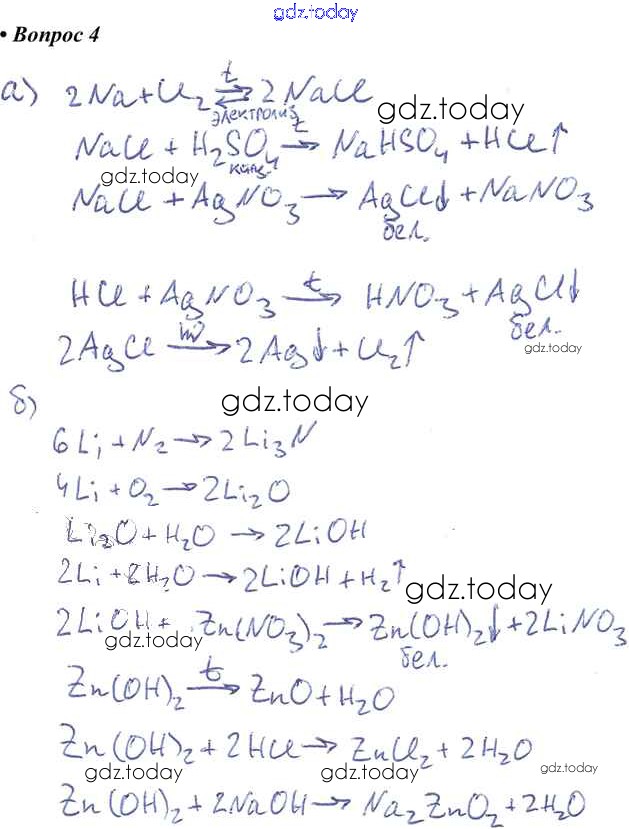 gdz.today
• Вопрос 4
а) 2Na + Cl₂ ⇄ 2NaCl
t
электролиз
gdz.today
NaCl + H₂SO₄ →t NaHSO₄ + HCl↑
конц.
gdz.today
NaCl + AgNO₃ → AgCl↓ + NaNO₃
бел.
HCl + AgNO₃ →t HNO₃ + AgCl↓
бел.
2AgCl →hν 2Ag↓ + Cl₂↑
gdz.today
б)
gdz.today
6Li + N₂ → 2Li₃N
4Li + O₂ → 2Li₂O
Li₂O + H₂O → 2LiOH
2Li + 2H₂O → 2LiOH + H₂↑
gdz.today
2LiOH + Zn(NO₃)₂ → Zn(OH)₂↓ + 2LiNO₃
gdz.today
бел.
Zn(OH)₂ →t ZnO + H₂O
Zn(OH)₂ + 2HCl → ZnCl₂ + 2H₂O
gdz.today gdz.today gdz.today
Zn(OH)₂ + 2NaOH → Na₂ZnO₂ + 2H₂O